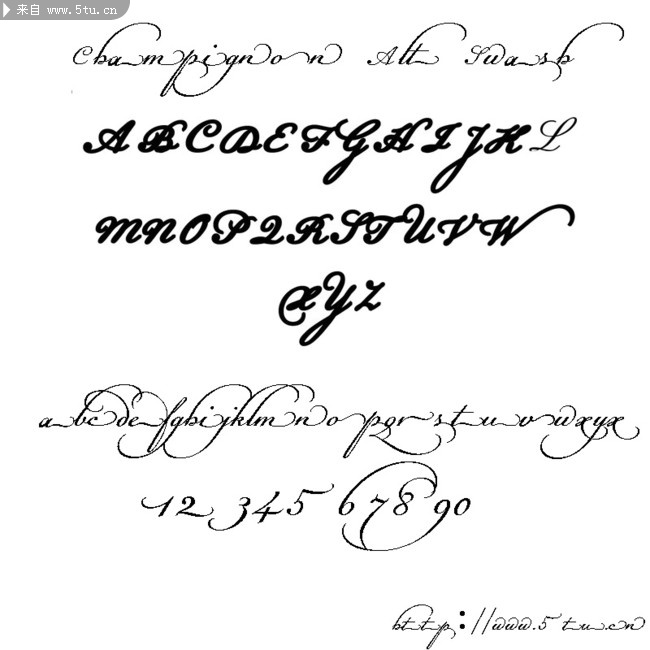 来自 www.5tu.cn
Champignon Alt Swash
ABCDEFGHIJKL
MNOPQRSTUVW
XYZ
abcdefghijklmnopqrstuvwxyx
12 345 678 90
http://www.5tu.cn